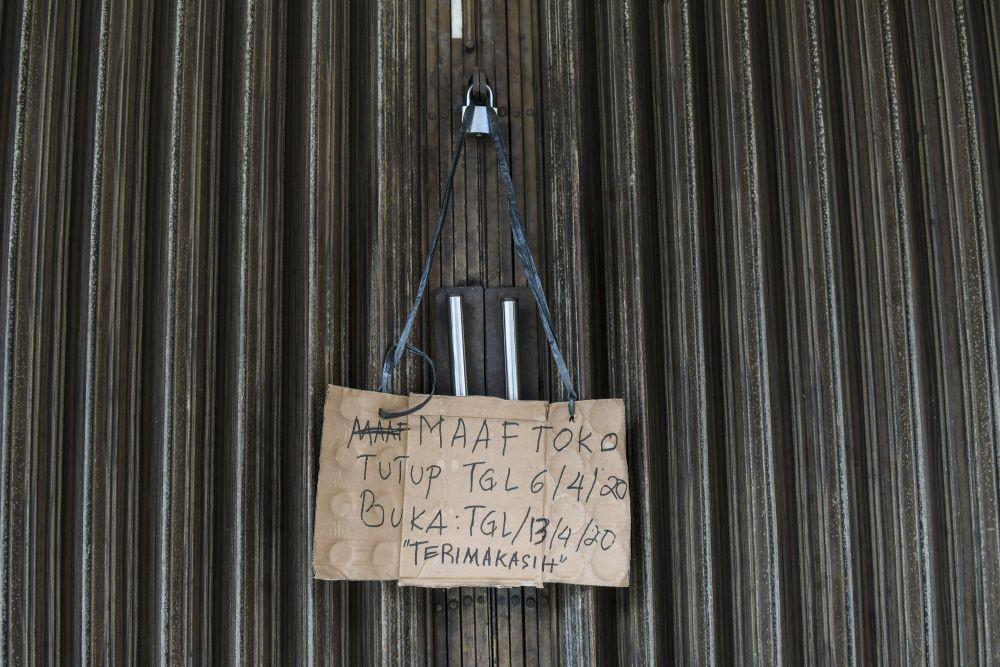 MAAF MAAF TOKO
TUTUP TGL 6/4/20
BUKA: TGL/13/4/20
"TERIMAKASIH"